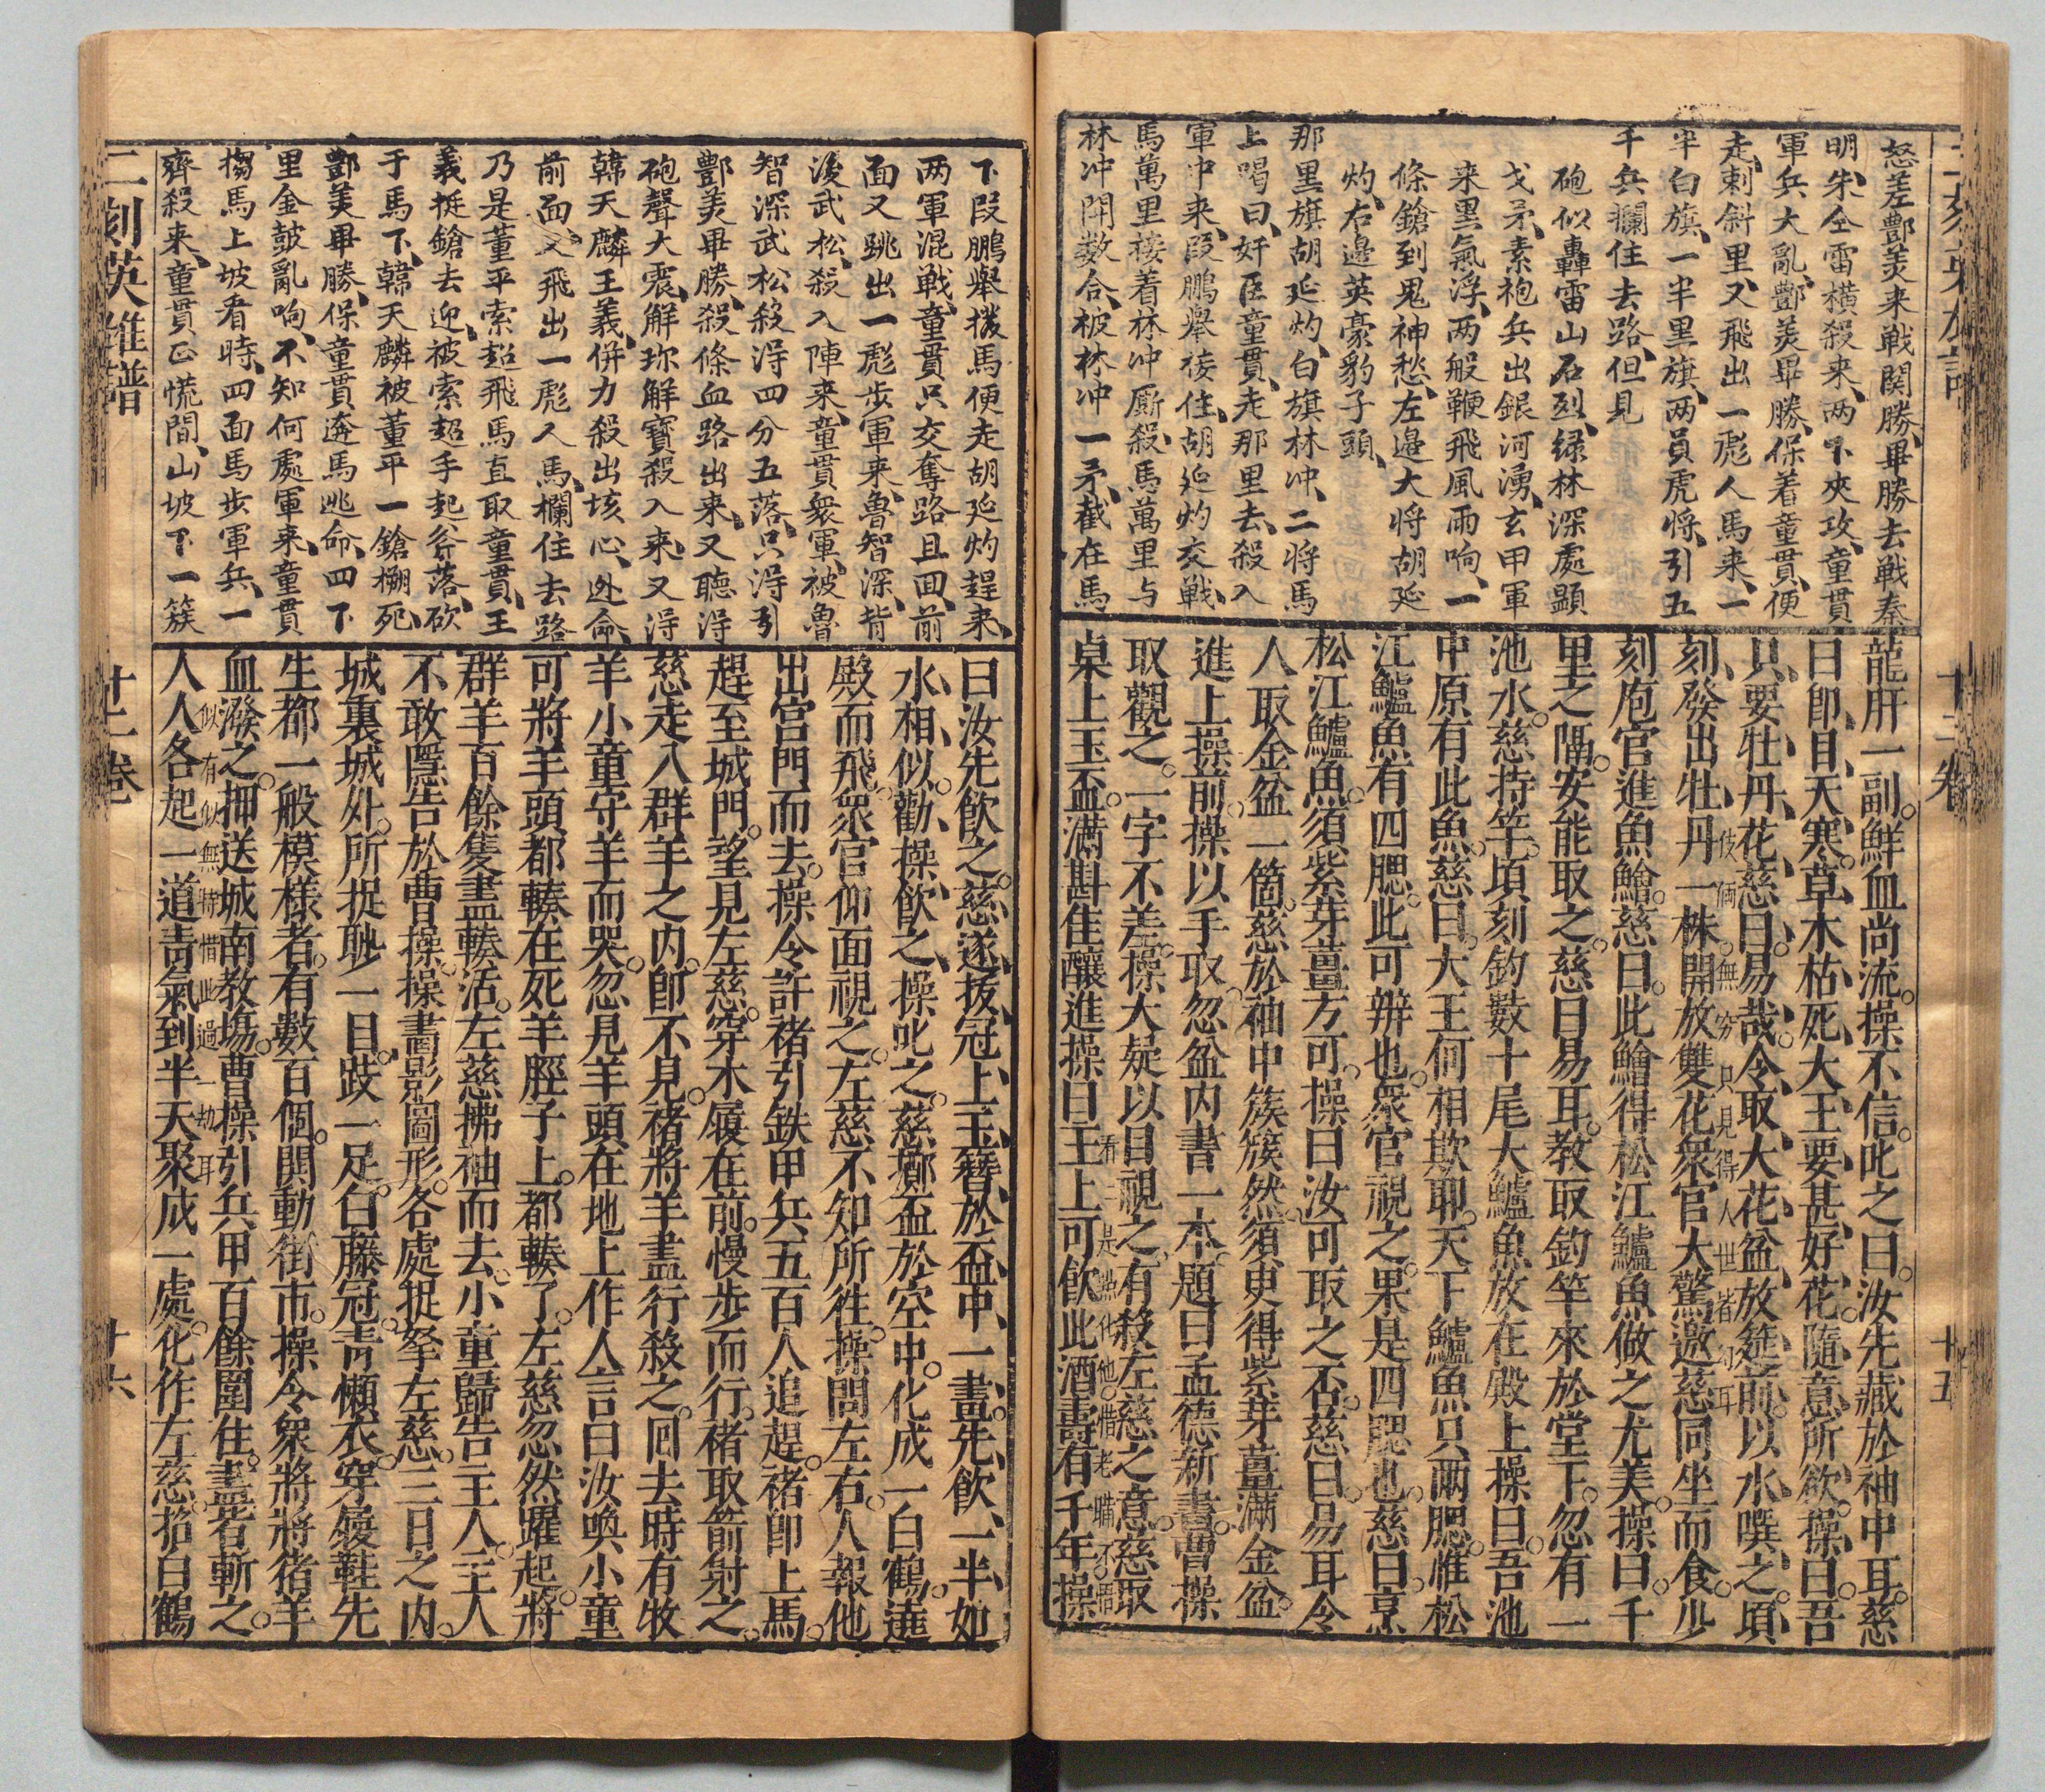 二刻英雄譜
十二卷
十五
怒差酆美来戰関勝、畢勝去戰秦
明、朱仝雷橫殺来、两下夾攻、童貫
軍兵大亂、酆美畢勝、保着童貫、便
走、刺斜里、又飛出一彪人馬来、一
半白旗、一半里旗、两員虎將、引五
千兵攔住去路、但見
砲似轟雷山石烈、緑林深處顕
戈矛、素袍兵出銀河湧、玄甲軍
来黑氣浮、两般鞭飛風雨响、一
條鎗到鬼神愁、左邉大将胡延
灼、右邉英豪豹子頭、
那里旗胡延灼、白旗林冲、二将馬
上喝曰、奸臣童貫、走那里去、殺入
軍中来、段鵬舉接住、胡延灼交戰、
馬萬里接着林冲厮殺、馬萬里与
林冲閗数合、被林冲一矛、截在馬
龍肝一副。鮮血尚流。操不信。叱之曰。汝先藏於袖中耳。慈
曰即目天寒。草木枯死、大王要甚好花。隨意所欲。操曰。吾
只要牡丹花。慈曰。易哉。令取大花盆放筵前。以水噀之。頃
刻發出牡丹一株。開放雙花。衆官大驚。邀慈同坐而食。少
伎倆。無窮只見得人世皆幻耳
刻庖官進魚鱠。慈曰。此鱠得松江鱸魚做之尤美。操曰。千
里之隔。安能取之。慈曰易耳。教取釣竿來於堂下。忽有一
池水。慈持竿。頃刻釣數十尾大鱸魚放在殿上。操曰。吾池
中原有此魚。慈曰。大王何相欺耶。天下鱸魚只兩腮。惟松
江鱸魚有四腮。此可辨也。衆官視之。果是四腮也。慈曰。烹
松江鱸魚。須紫芽薑方可。操曰汝可取之否。慈曰。易耳令
人取金盆一箇。慈於袖中簇簇然。須臾得紫芽薑滿金盆。
進上操前。操以手取。忽盆内書一本。題曰孟德新書。曹操
取觀之。一字不差。操大疑以目視之。有殺左慈之意。慈取
桌上玉盃。滿斟佳釀進操曰王上可飲此酒壽有千年。操
是點化他。惜老瞞不悟
下段鵬舉撥馬便走胡延灼趕来、
两軍混戰、童貫只交奪路且回、前
面又跳出一彪步軍来、魯智深、背
後武松、殺入陣来、童貫衆軍、被魯
智深武松殺淂四分五落、只淂引
酆美畢勝、殺條血路出来、又聴淂
砲聲大震、解珎解寶殺入来、又淂
韓天麟王義、併力殺出垓心、迯命、
前面又飛出一彪人馬、攔住去路
乃是董平索超飛馬直取童貫、王
義挺鎗去迎、被索超手起斧落、砍
于馬下、韓天麟被董平一鎗搠死、
酆美畢勝、保童貫、奔馬逃命、四下
里金皷亂响、不知何處軍来、童貫
搊馬上坡看時、四面馬步軍兵、一
齊殺来、童貫正慌間、山坡下一簇
曰汝先飲之。慈遂拔冠上玉簪於盃中、一畫。先飲一半如
水相似。勸操飲之。操叱之。慈擲盃於空中。化成一白鶴。遶
殿而飛。衆官仰面視之。左慈不知所徃。操問左右。人報他
出宫門而去。操令許褚引鉄甲兵五百人追趕。褚即上馬。
趕至城門。望見左慈。穿木履在前。慢步而行。褚取箭射之。
慈走入群羊之内。即不見。褚將羊盡行殺之。囘去時有牧
羊小童守羊而哭。忽見羊頭在地上作人言曰汝喚小童
可將羊頭都輳在死羊脛子上。都輳了。左慈忽然躍起。將
群羊百餘隻盡輳活。左慈拂袖而去。小童歸告主人。主人
不敢隱。告於曹操。操畫影圖形。各處捉拏左慈。三日之内。
城裏城外。所捉眇一目。跛一足。白藤冠。青懶衣。穿履鞋先
生都一般模樣者。有數百個。閧動街市。操令衆將將猪羊
血潑之。押送城南教塲。曹操引兵甲百餘圍住。盡皆斬之。
似有似無特惜此過一劫耳
人人各起一道靑氣。到半天聚成一處。化作左慈。招白鶴
二刻英雄譜
十二卷
十六